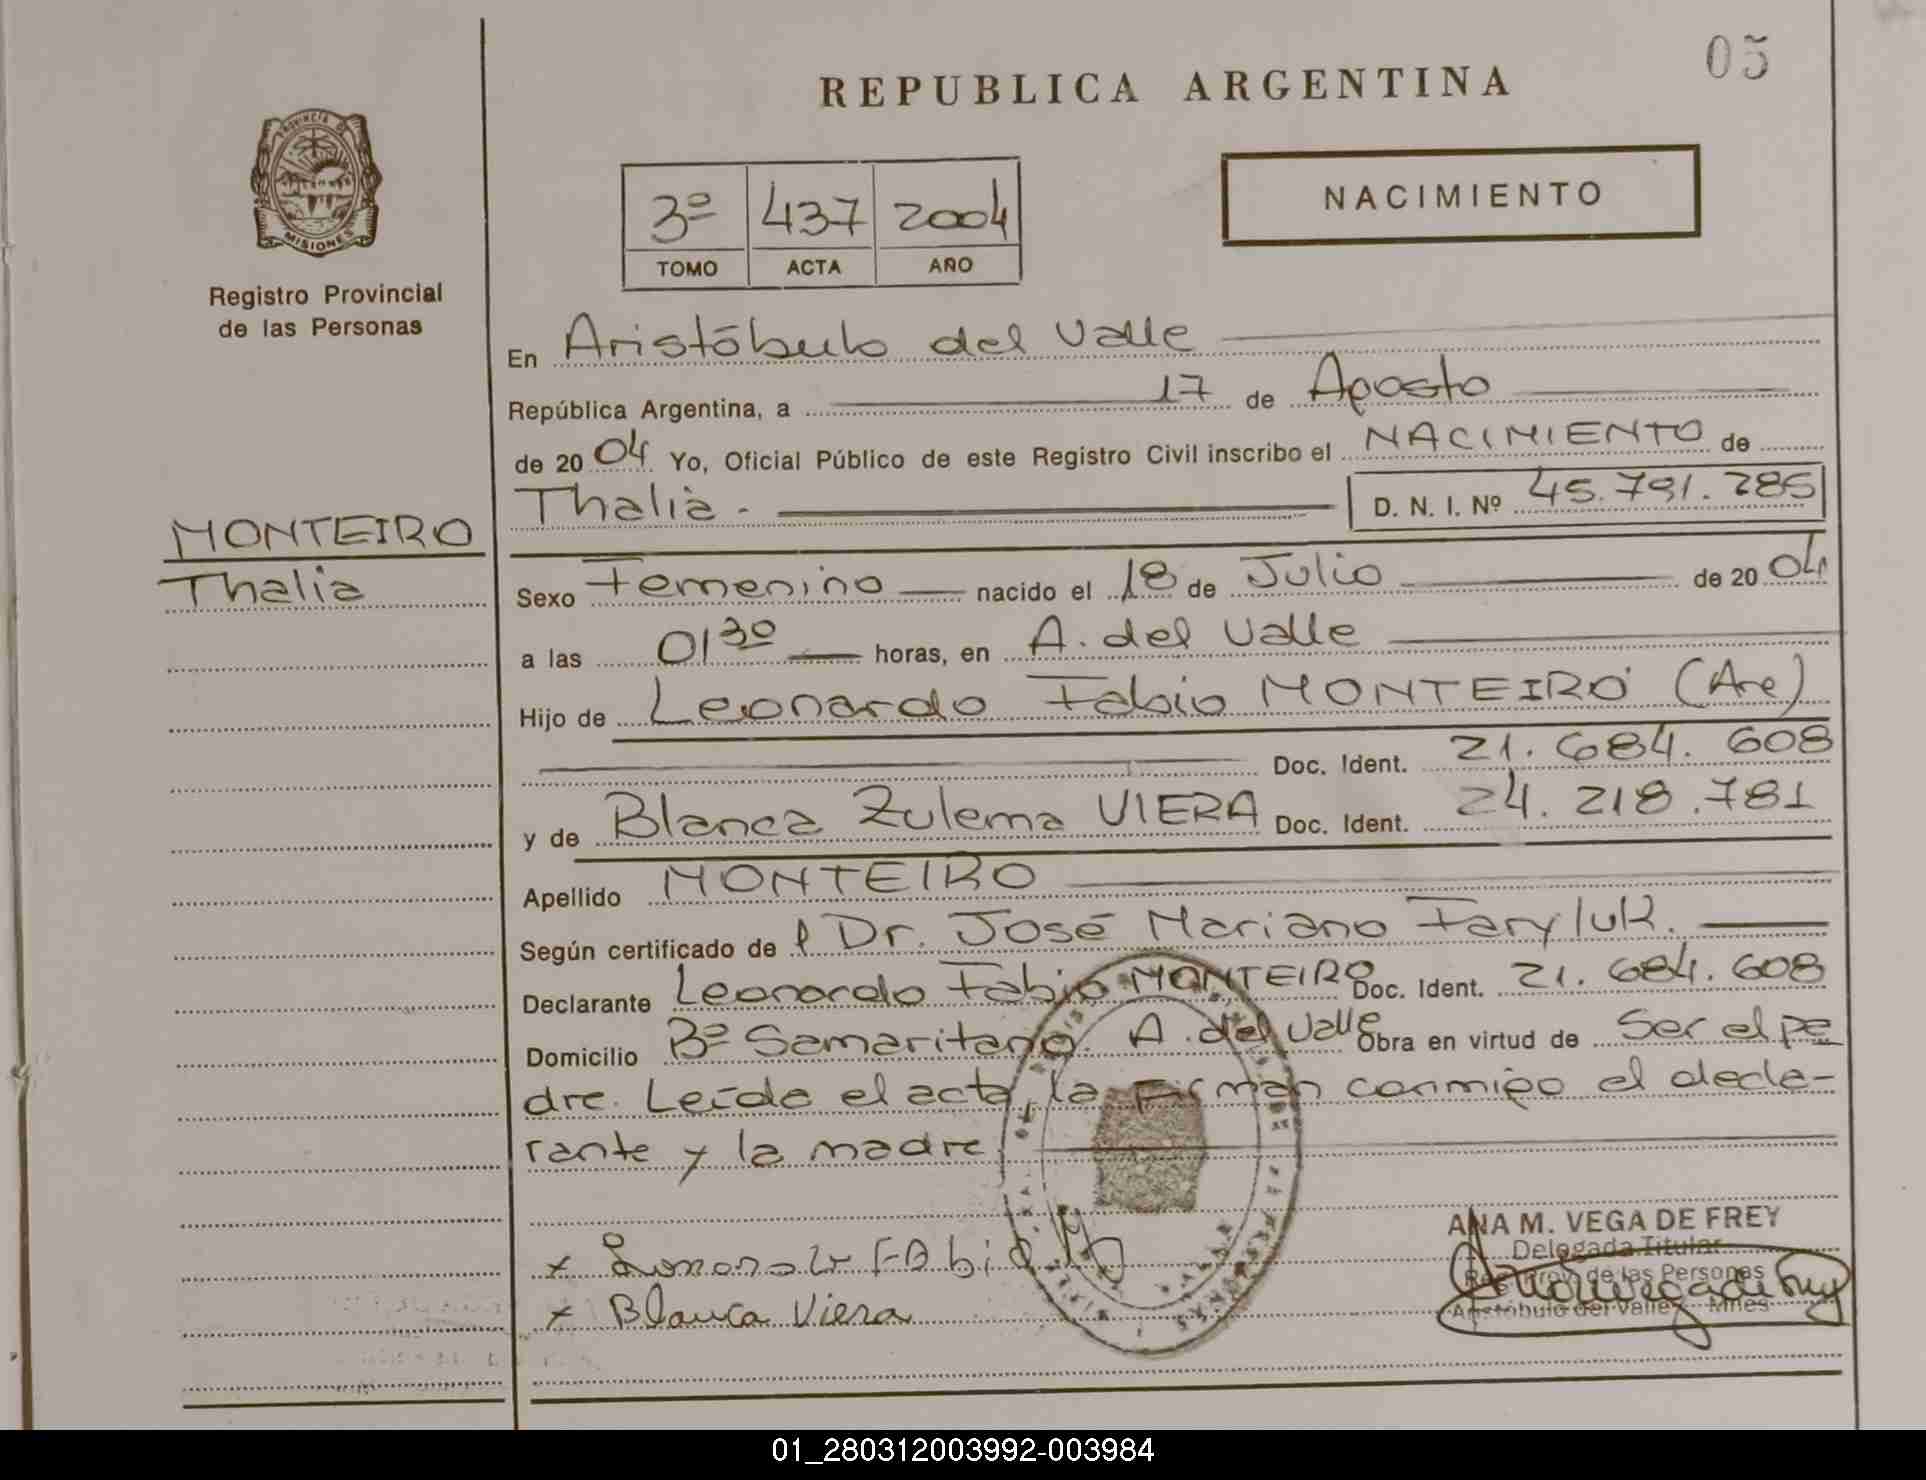 05
REPUBLICA ARGENTINA
PROVINCIA DE
MISIONES
Registro Provincial
de las Personas
3º 437 2004
TOMO ACTA AÑO
NACIMIENTO
En Aristóbulo del Valle
República Argentina, a 17 de Agosto
de 20 04 Yo, Oficial Público de este Registro Civil inscribo el NACIMIENTO de
Thalia. D. N. I. Nº 45.791.285
MONTEIRO
Thalia
Sexo Femenino nacido el 18 de Julio de 20 04
a las 01 30 horas, en A. del Valle
Hijo de Leonardo Fabio MONTEIRO (Are)
Doc. Ident. 21.684.608
y de Blanca Zulema VIERA Doc. Ident. 24.218.781
Apellido MONTEIRO
Según certificado de l Dr. José Mariano Faryluk.
Declarante Leonardo Fabio MONTEIRO Doc. Ident. 21.684.608
Domicilio Bº Samaritano. A. del Valle Obra en virtud de Ser el pa
dre. Leída el acta, la firman conmigo el decla-
rante y la madre
ANA M. VEGA DE FREY
Delegada Titular
Reg. Prov. de las Personas
Aristóbulo del Valle - Mnes
x Leonardo FAbio M
x Blanca Viera
01_280312003992-003984